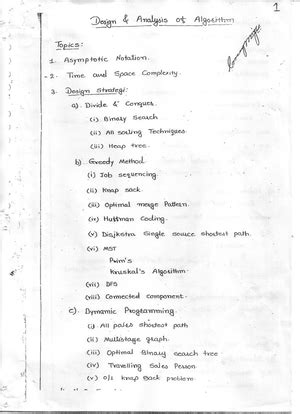 1
Design & Analysis of Algorithm
Topics:
1. Asymptotic Notation.
2. Time and Space Complexity.
3. Design Strategi:
a). Divide & Conquer.
(i) Binary Search
(ii) All sorting Techniques.
(iii) Heap tree.
b). Greedy Method
(i) Job sequencing.
(ii) Knap sack.
(iii) Optimal merge Pattern.
(iv) Huffman Coding.
(v) Dijkstra Single source shortest path.
(vi) MST
Prim's
Kruskal's Algorithm
(vii) DFS
(viii) Connected component.
c) Dynamic Programming.
(i) All paies shortest path
(ii) Multistage graph.
(iii) Optimal Binary search tree
(iv) Travelling Sales Person
(v) 0/1 Knap Sack problem